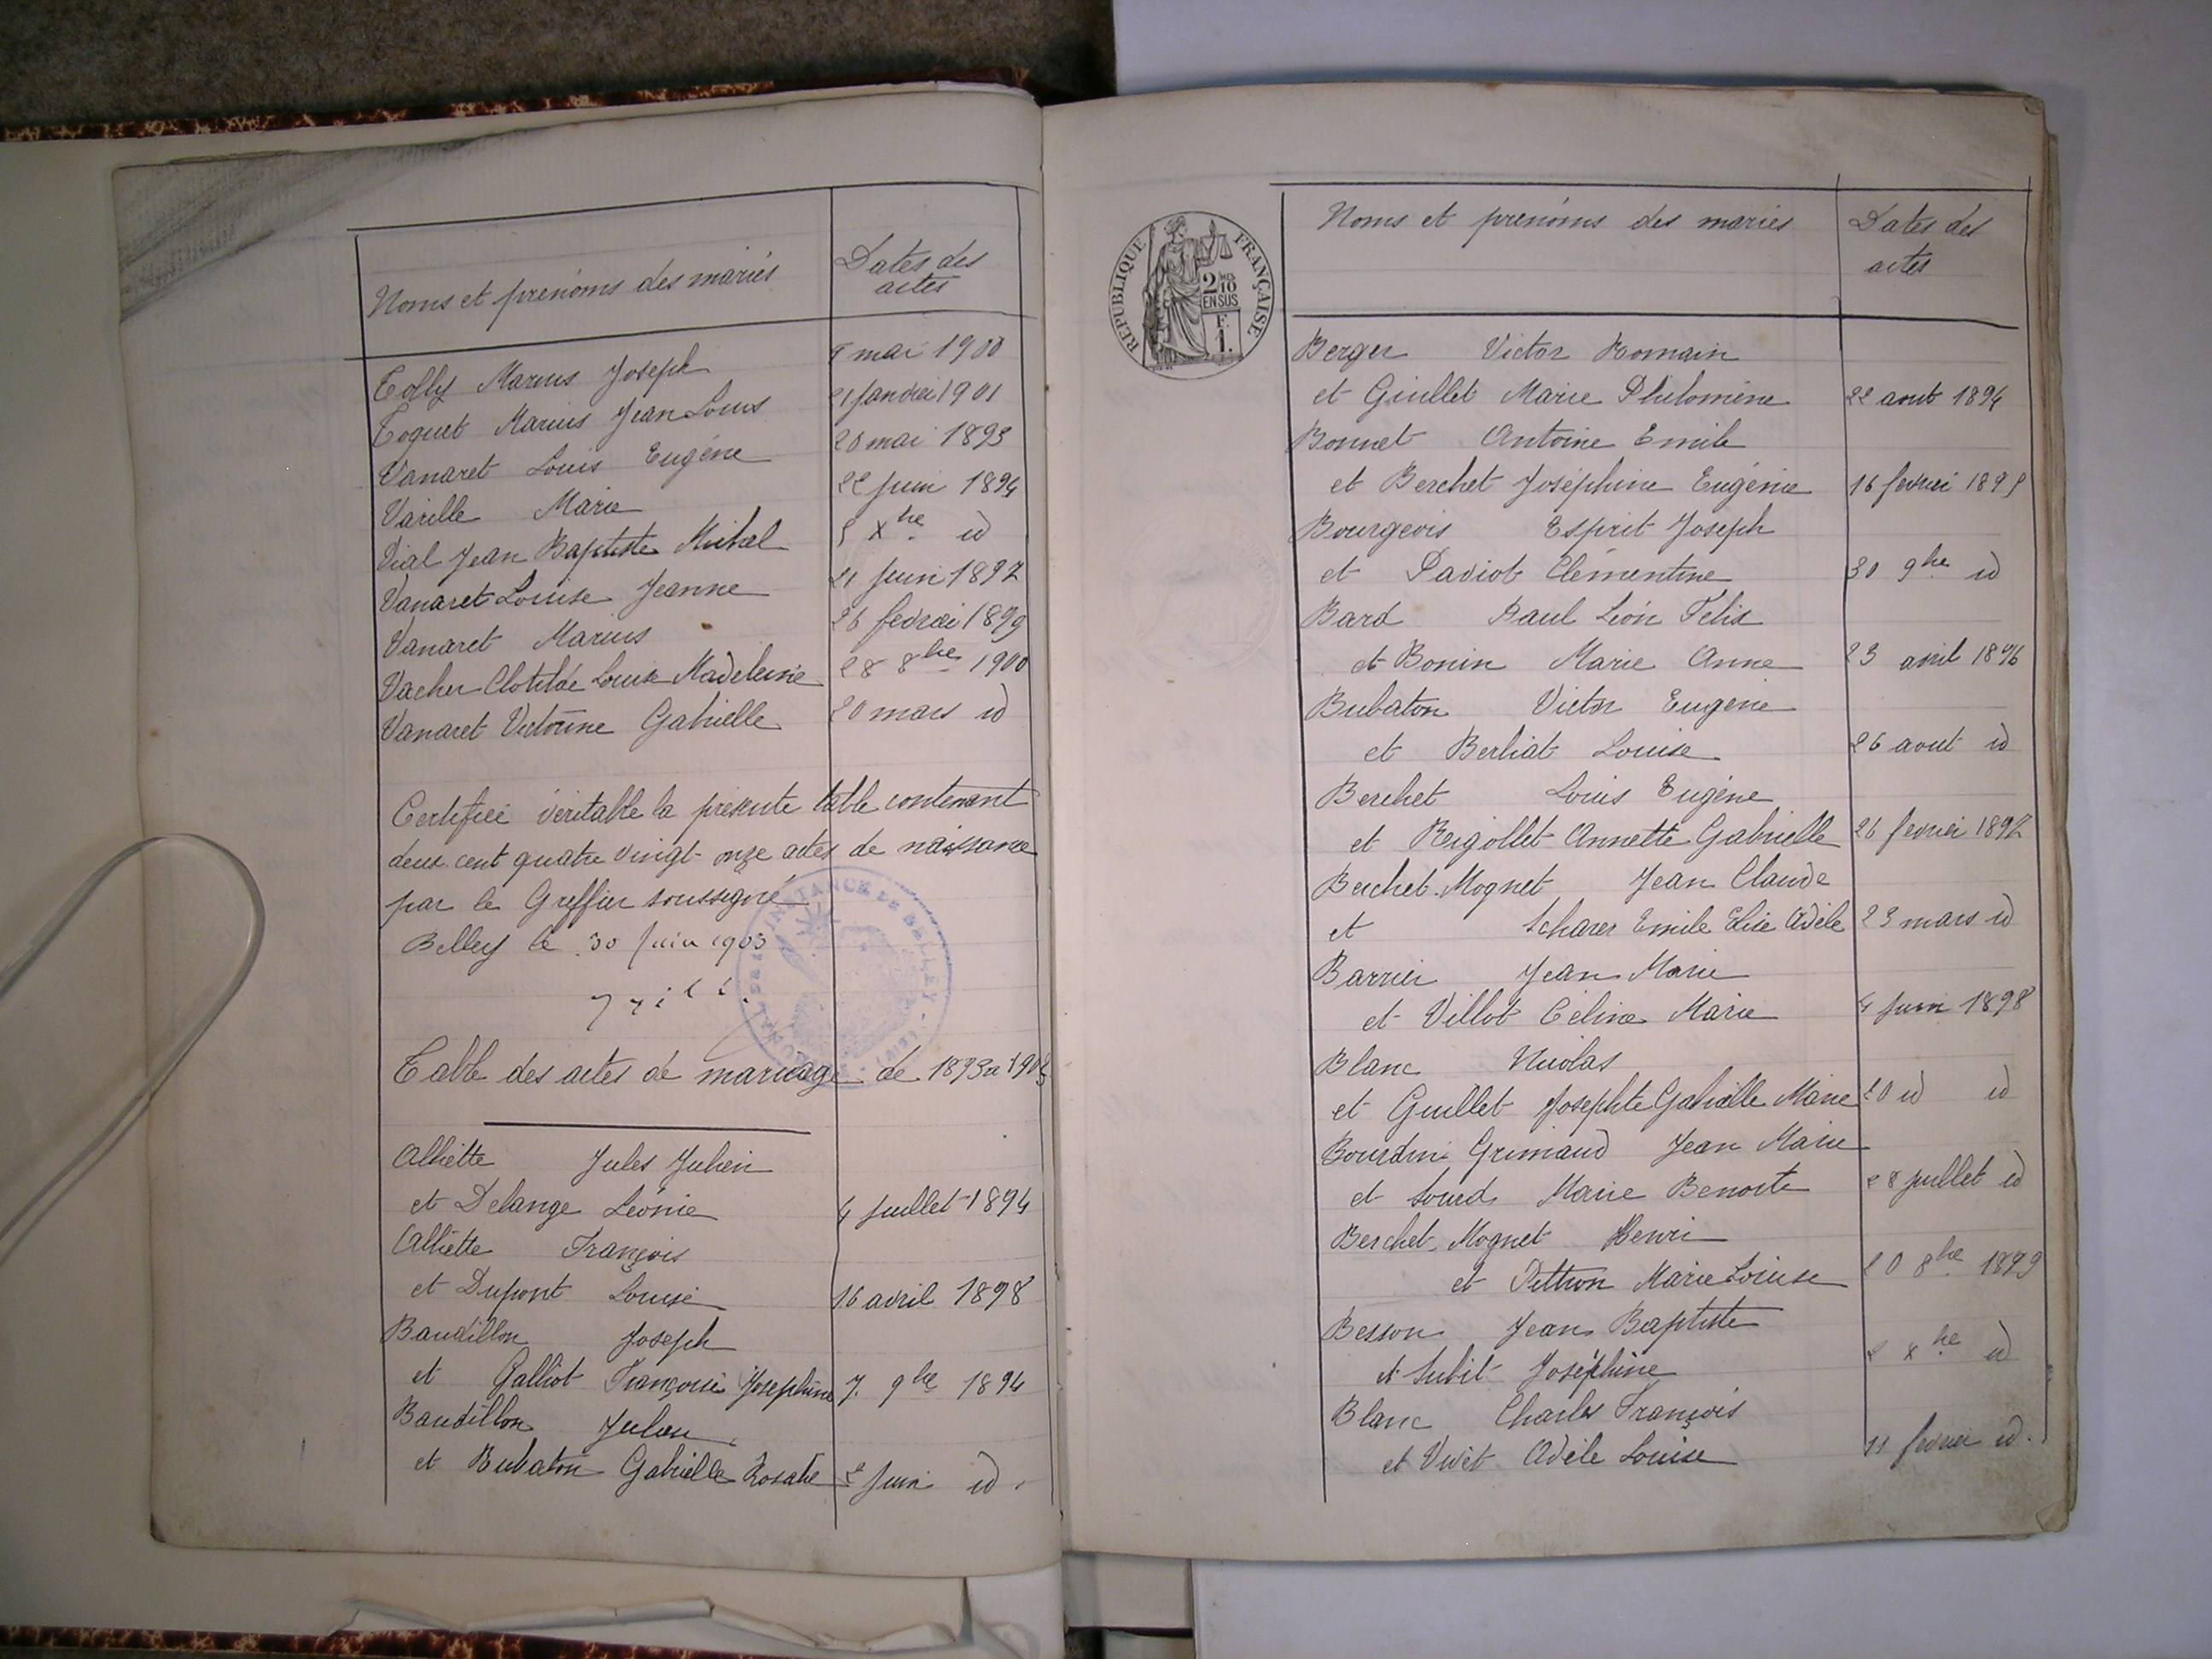 Noms et prénoms des mariés
Dates des
actes
Tolly Marius Joseph
mai 1900
Toquet Marius Jean Louis
21 janvier 1901
Vanaret Louis Eugène
20 mai 1893
Varille Marie
22 juin 1894
Vial Jean Baptiste Michel
5 Xbre id
Vanaret Louise Jeanne
21 juin 1897
Vanaret Marius
26 fevrier 1899
Vacher Clotilde Louise Madeleine
28 8bre 1900
Vanaret Victorine Gabrielle
20 mars id
Certifiée véritable la présente table contenant
deux cent quatre vingt onze actes de naissance
par le Greffier soussigné
Belley le 30 juin 1903
Table des actes de mariage de 1893 a
Alliette Jules Julien
et Delange Léonie
4 juillet 1894
Alliette François
et Dupont Louise
16 avril 1898
Baudillon Joseph
et Galliot Françoise Josephine
7. 9bre 1894
Baudillon
et Bubaton Gabrielle Rosalie
2 juin id.
REPUBLIQUE FRANÇAISE
2/10
EN SUS
F.
1.
Noms et prénoms des mariés
Dates des
actes
Berger Victor Romain
et Guillet Marie Philomène
22 aout 1894
Bonnet Antoine Emile
et Berchet Joséphine Eugénie
16 fevrier 1895
Bourgeois Esprit Joseph
et Paviot Clémentine
30 9bre id
Bard Paul Léon Felix
et Bonin Marie Anne
23 avril 1896
Bubaton Victor Eugène
et Berliat Louise
26 aout id
Berchet Louis Eugène
et Reigollet Annette Gabrielle
26 fevrier 1897
Berchet-Mognet Jean Claude
et Scharer Emile Elise Adèle
23 mars id
Barrier Jean Marie
et Villot Céline Marie
4 juin 1898
Blanc Nicolas
et Guillet Josephte Gabrielle Marie
20 id id
Bourdin Grimaud Jean Marie
et Sourd Marie Benoite
28 juillet id
Berchet-Mognet Henri
et Pettron Marie Louise
20 8bre 1899
Besson Jean Baptiste
et Subit Joséphine
2 Xbre id
Blanc Charles François
et Vivet Adèle Louise
11 fevrier id.